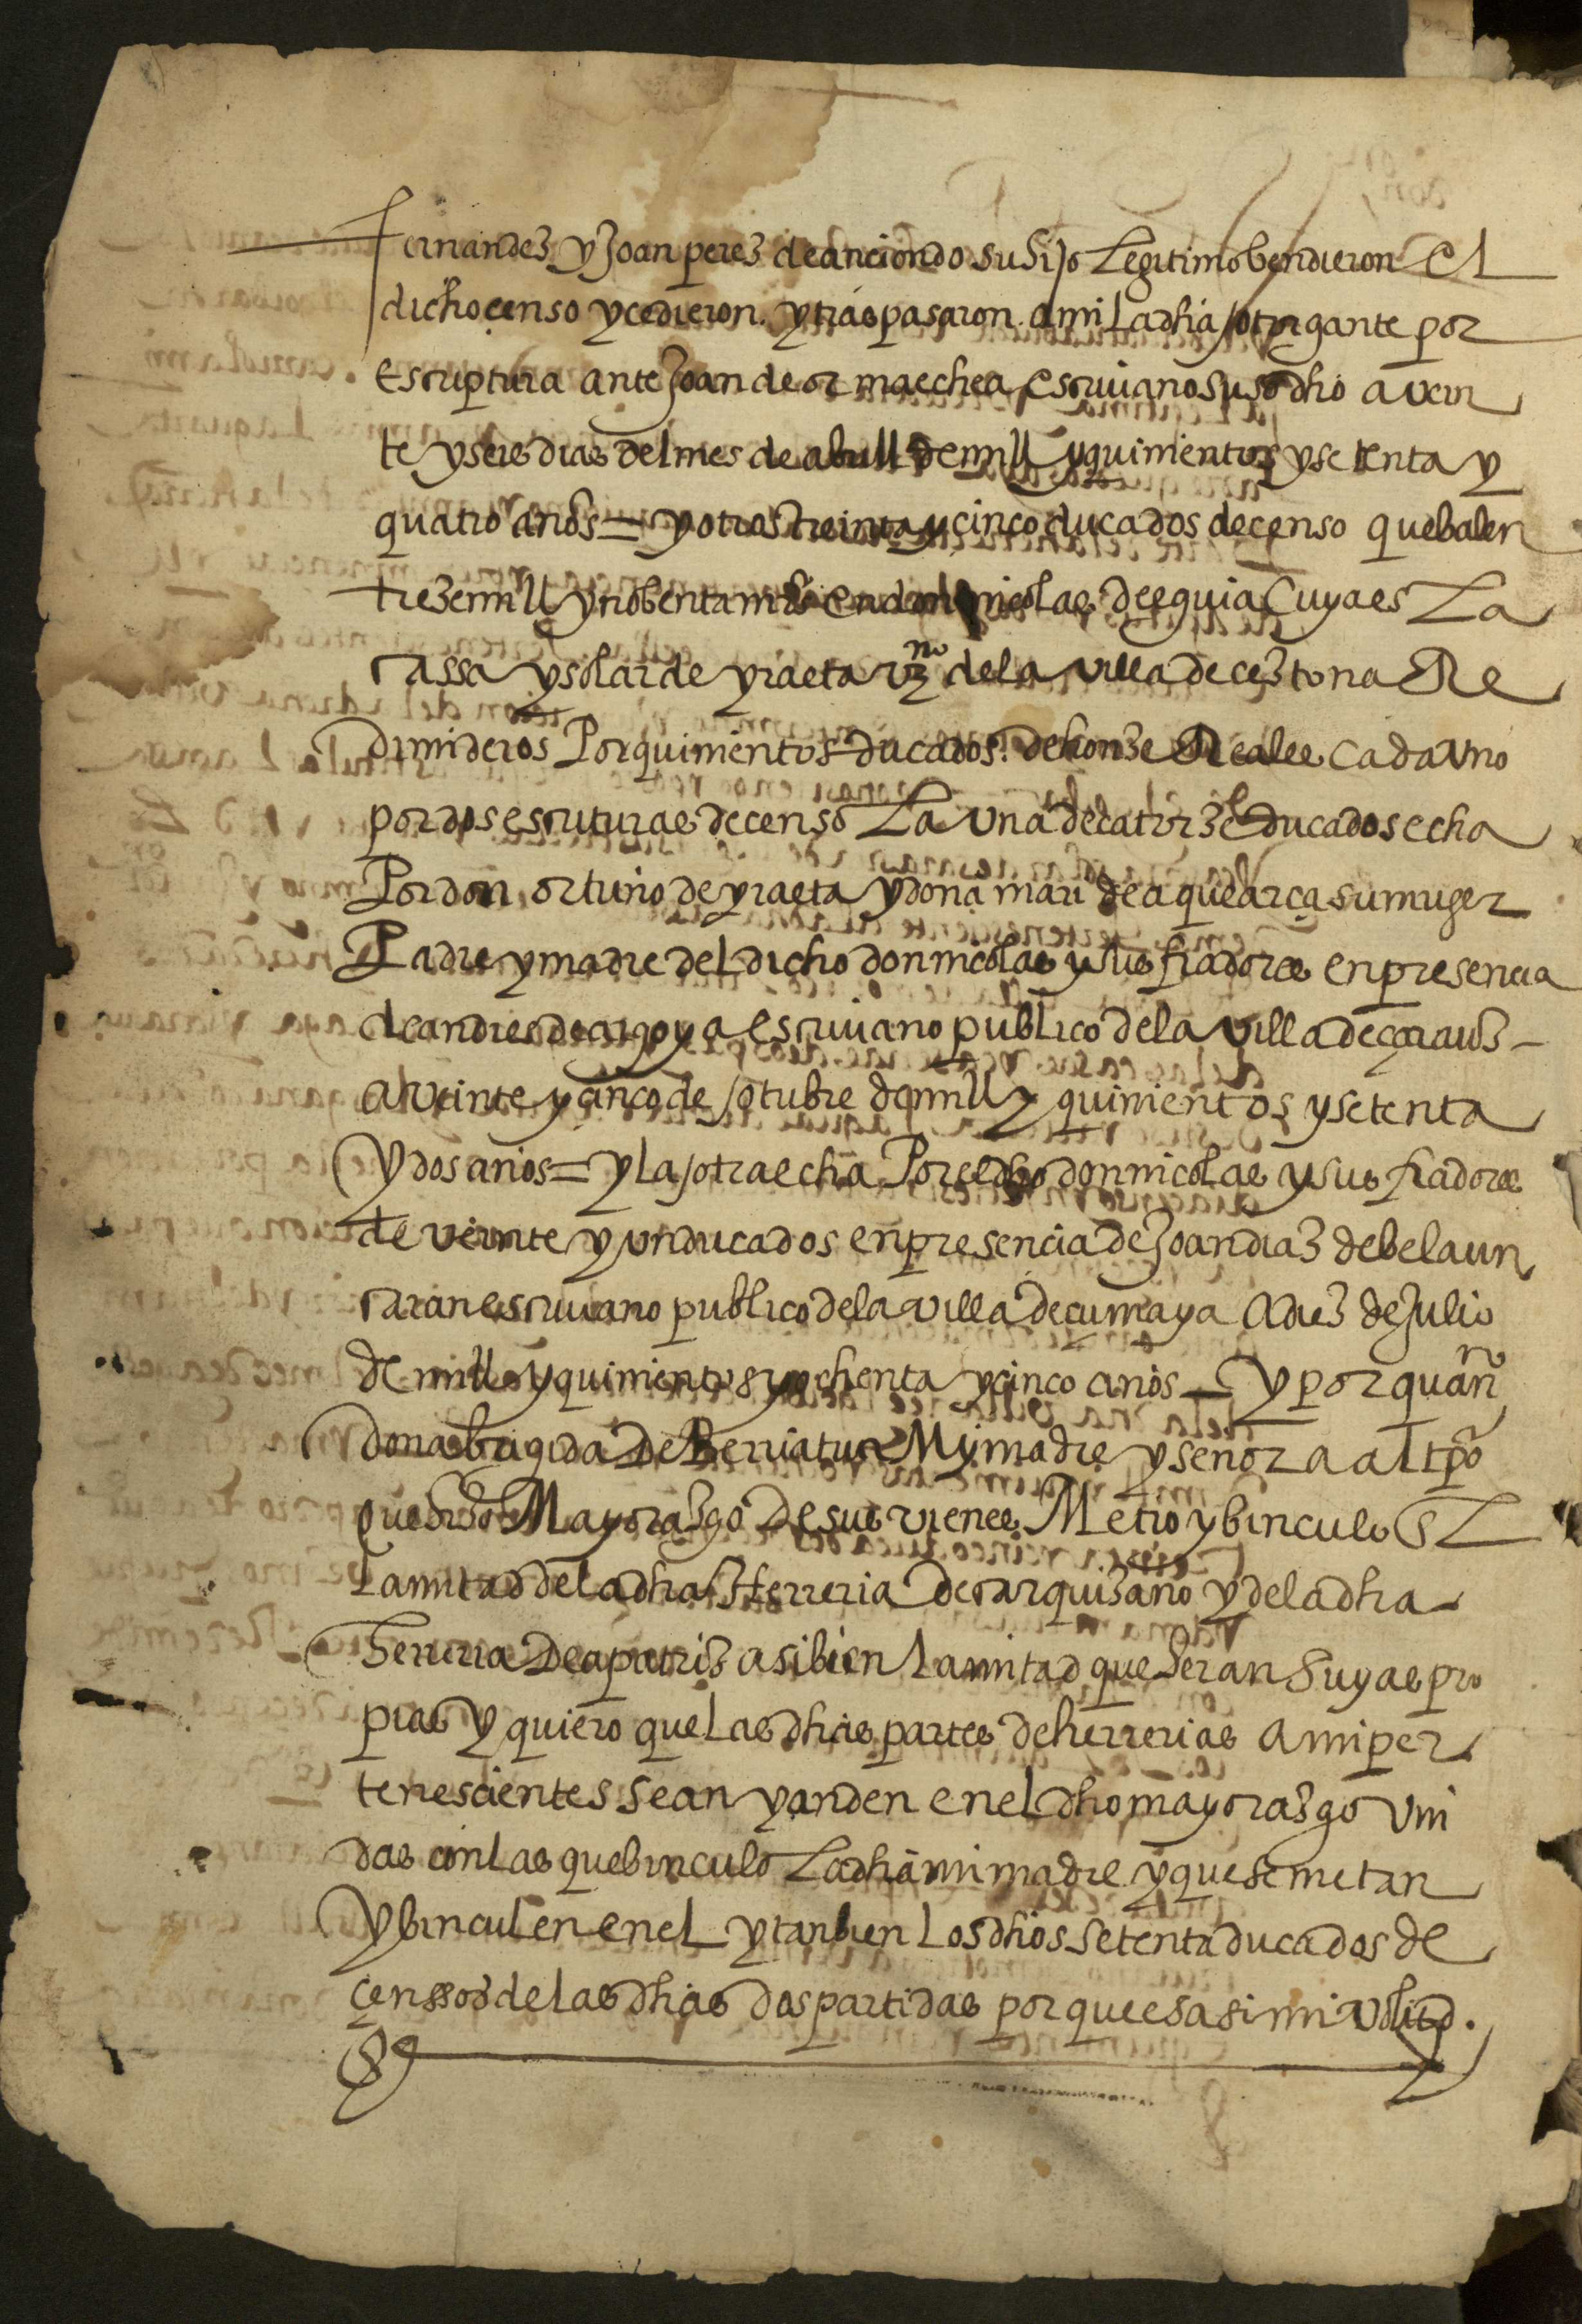 fernandez y Joan perez de anciondo su hijo Legitimo bendieron el
dicho censo y cedieron. y traspasaron. a mi La dha otorgante por
escriptura ante Joan de ormaechea escriuano susodho a vein
te y seis dias del mes de abrill de mill y quinientos y setenta y
quatro años = y otros treinta y cinco ducados de censo que balen
treze mill y nobenta mrs en don nicolas de eguia Cuya es La
cassa y solar de yraeta vzno de la villa de cestona Re
dimideros Por quinientos ducados. de honze Reales cada vno
por dos escrituras de censo La vna de catorze ducados echa
Por don ortuño de yraeta y doña mari de aquearça su muger
Padre y madre del dicho don nicolas y sus fiadores en presencia
de andres de argoya escriuano publico de la villa de çaraus –
a veinte y cinco de otubre de mill y quinientos y setenta
y dos años = y La otra echa Por el dho don nicolas y sus fiadores
de veinte y vn ducados en presencia de Joan diaz de belaun
çaran escriuano publico de la villa de cumaya a diez de Julio
de mill y quinientos y ochenta y cinco años – y por quanto
doña brigida de Berriatua My madre y señora al tpo
que hizo Mayorazgo de sus vienes Metio y binculo El
La mitad de la dha Herreria de carquizano y de la dha
herreria de apatriz asi bien La mitad que heran suyas pro
pias y quiero que Las dhas partes de herrerias a mi per
tenescientes sean y anden en el dho mayorazgo vni
das con las que binculo La dha mi madre y que se metan
y binculen en el y tanbien Los dhos setenta ducados de
çenssos de las dhas dos partidas por que es asi mi volutd.